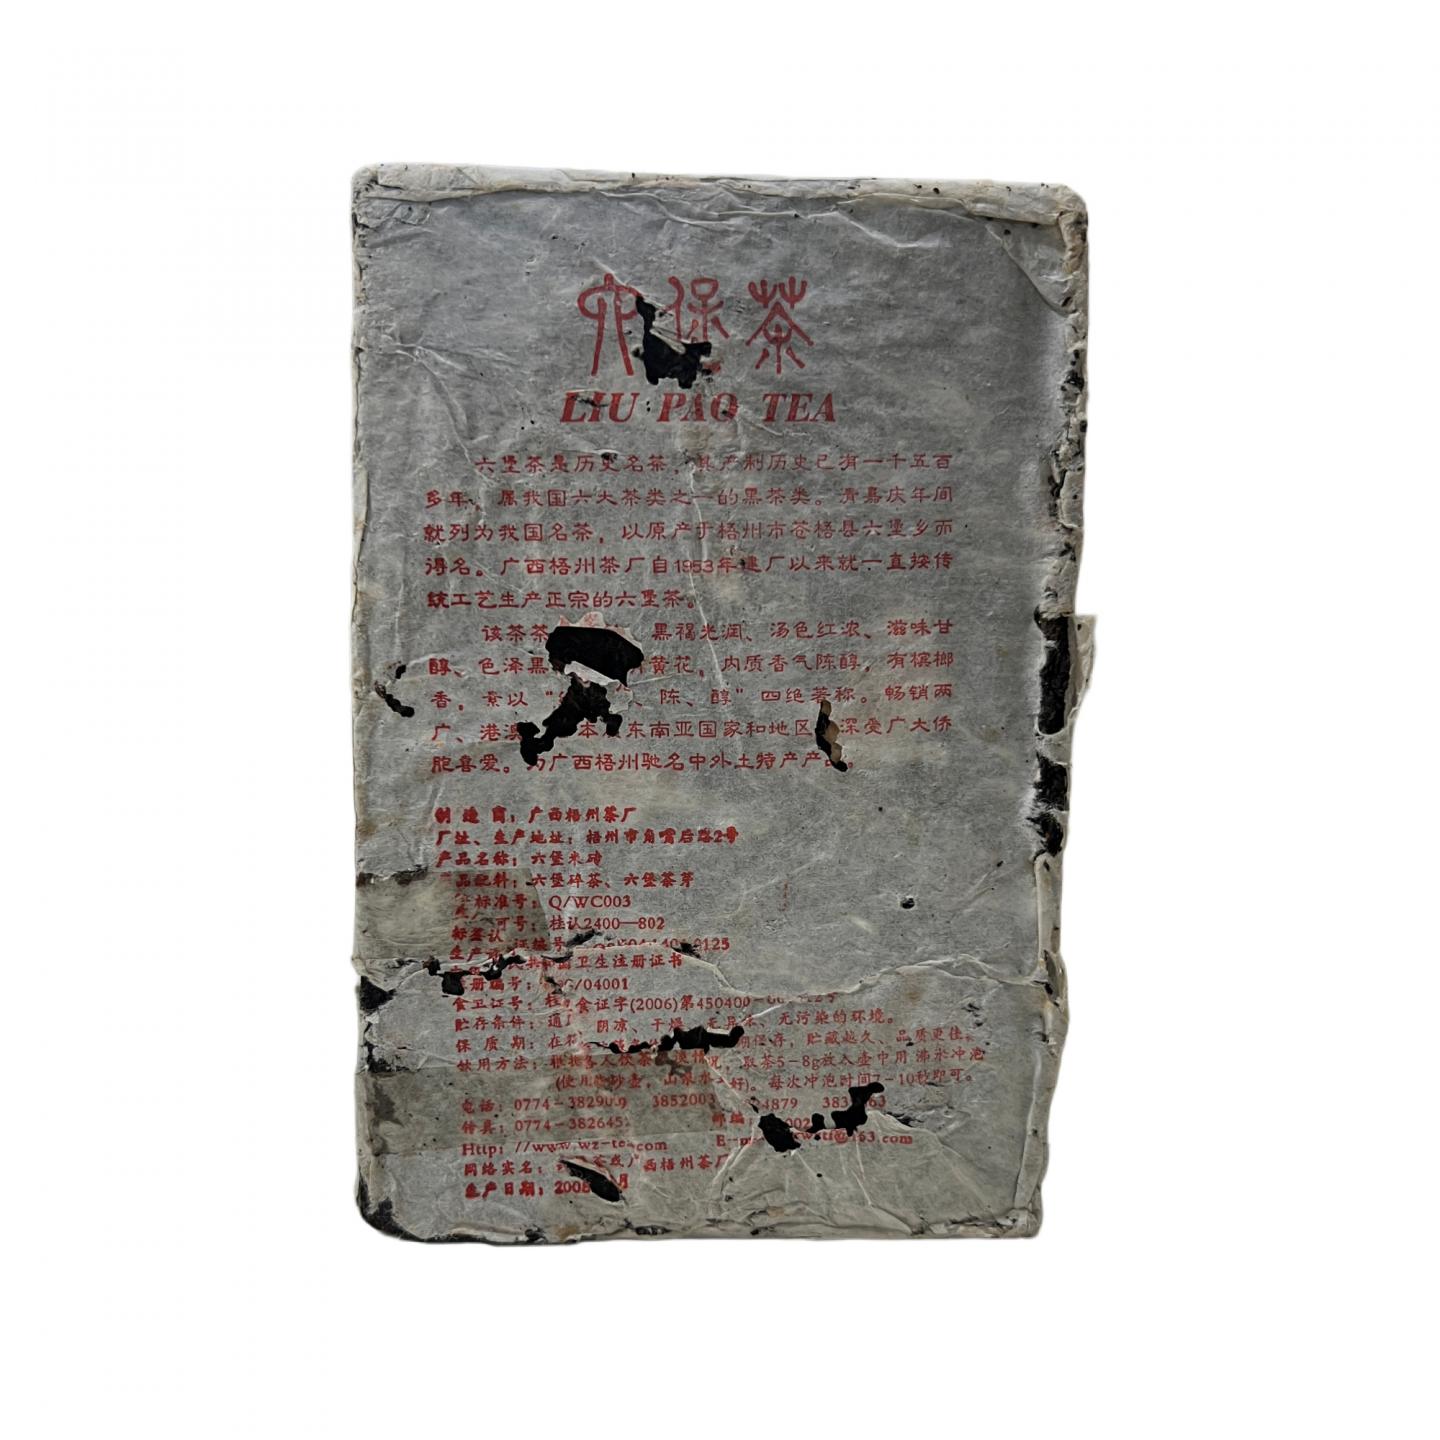 六保茶
LIU PAO TEA
六堡茶是历史名茶，其产制历史已有一千五百
多年，属我国六大茶类之一的黑茶类。清嘉庆年间
就列为我国名茶，以原产于梧州市苍梧县六堡乡而
得名。广西梧州茶厂自1953年建厂以来就一直按传
统工艺生产正宗的六堡茶。
该茶茶 黑褐光润、汤色红浓、滋味甘
醇、色泽黑 黄花，内质香气陈醇，有槟榔
香，素以“ 、陈、醇”四绝著称。畅销两
广、港澳 本 东南亚国家和地区 深受广大侨
胞喜爱。为广西梧州驰名中外土特产产 。
制 造 商：广西梧州茶厂
厂址、生产地址：梧州市角嘴后路2号
产品名称：六堡米砖
品配料：六堡碎茶、六堡茶芽
标准号：Q/WC003
标签认 可号：桂认2400—802
生产 证编号 0125
民共和国卫生注册证书
册编号： /04001
食卫证号：桂 食证字(2006)第450400-
贮存条件：通 阴凉、干燥、无异味、无污染的环境。
保 质 期：在 期保存，贮藏越久、品质更佳。
饮用方法：根据各人饮茶 情况，取茶5-8g放入壶中用沸水冲泡
(使用紫砂壶，山泉水 好)。每次冲泡时间7-10秒即可。
电话：0774-3829 3852003 4879 383 63
传真：0774-382645 邮编： 002
Http://www.wz-tea.com E-m @163.com
网络实名： 茶或广西梧州茶厂
生产日期：2008 月